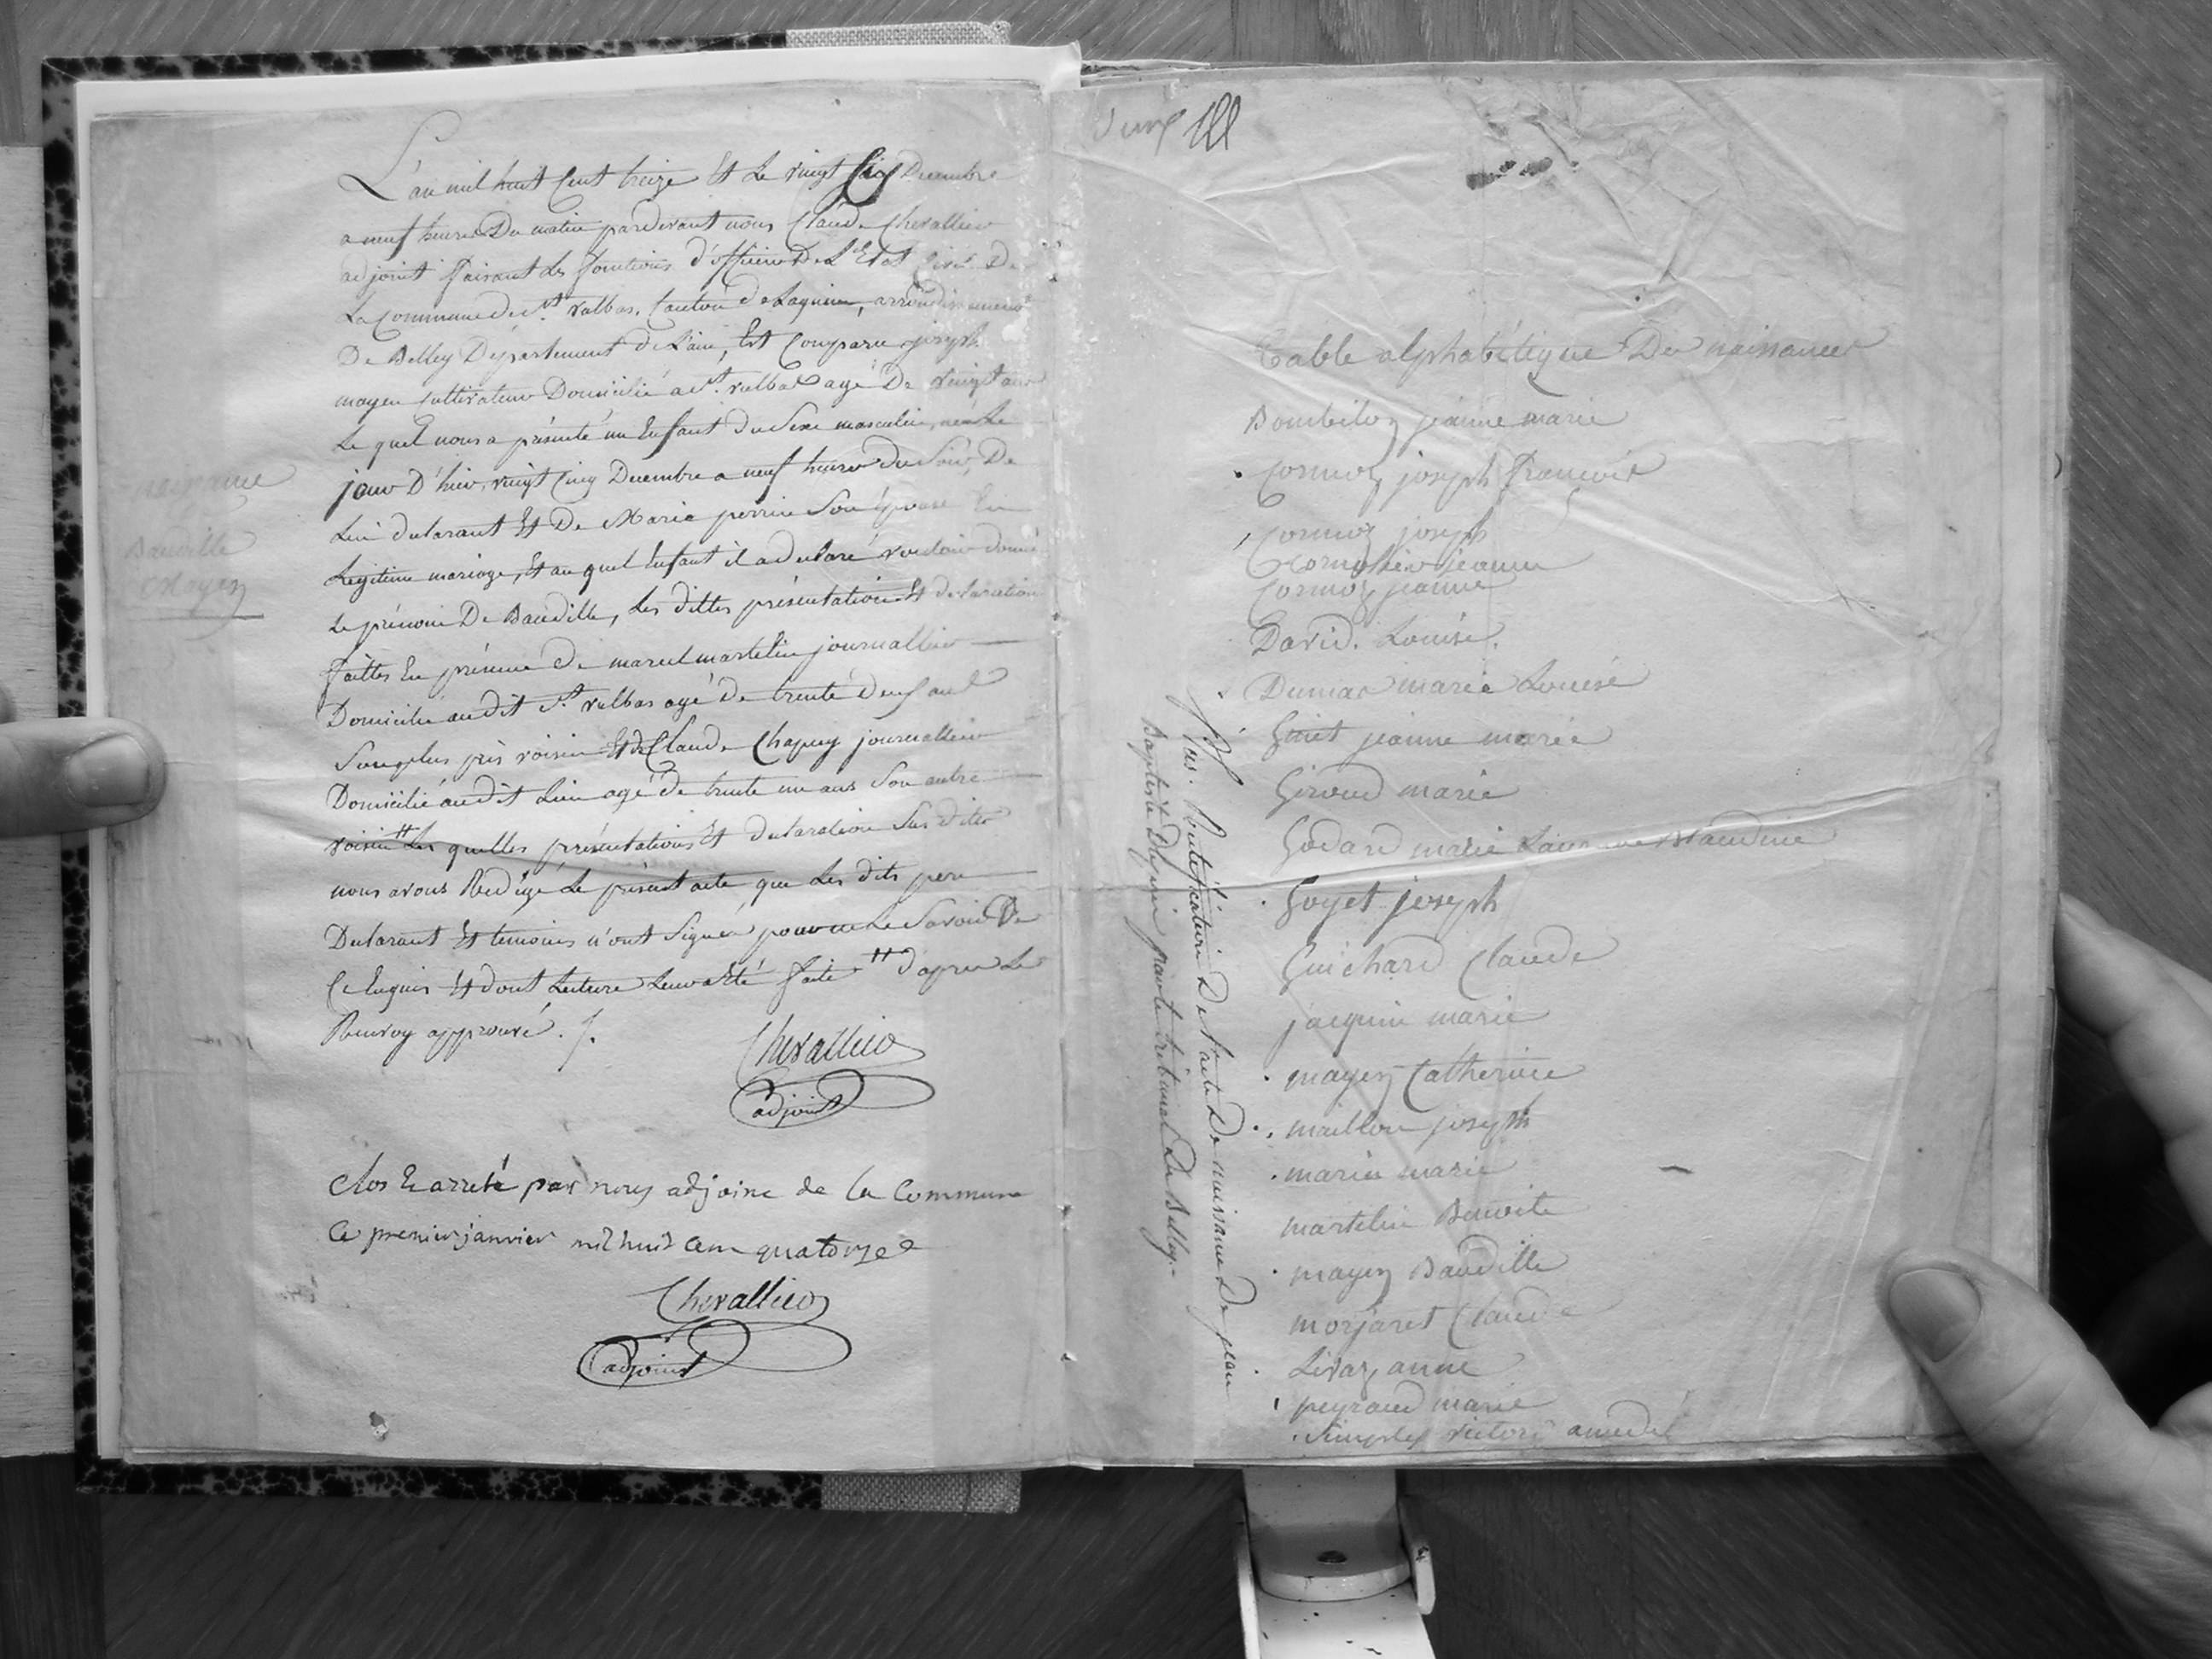 L'an mil huit Cent treize Et Le vingt Six Decembre
a neuf heures Du matin pardevant nous Claude Chevallier
adjoint faisant les fonctions d'officier De L'Etat Civil De
La Commune de St. Vulbas, Canton de Lagnieu, arrondissement
De Belley Département de L'ain, Est Comparu joseph
mayen Cultivateur Domicilié a St. vulbas agé De vingt
Le quel nous a présenté un Enfant du Sexe masculin, né Le
jour D'hier, vingt Cinq Decembre a neuf heures du Soir, De
Lui declarant Et De Marie perrin Son Epouse En
Legitime mariage, Et au quel Enfant il a declaré vouloir donner
Le prénom De Baudille, Les dittes présentation Et declaration
faittes En présence de marcel martelin journallier
Domicilié au dit St. vulbas agé de trente deux ans
Son plus près voisin Et de Claude Chapuy journallier
Domicilié au dit Lieu agé de trente un ans Son autre
voisin # Les quelles présentations Et declaration Sus dites
nous avons Redigé Le présent acte, que Les dits pere
Declarant Et temoins n'ont Signé pour ne Le Savoir De
Ce Enquis Et dont Lecture Leur a Eté faite # d'apres Le
Renvoy approuvé ./.
Chevallier
adjoint
naissance
Baudille
Mayen
Clos Et arreté par nous adjoint de la Commune
Ce premier janvier mil huit Cent quatorze
Chevallier
adjoint
Table alphabétique Des naissances
Bombiloz jeanne marie
Cormoz joseph francois
Cormoz joseph
Cormoz jeanne
David. Louise.
Dumas marie Louise
Ginet jeanne marie
Giroud marie
Godard marie Blaudine
Goyet joseph
Guichard Claude
jacquin marie
mayen Catherine
maillon joseph
marin marie
martelin Benoite
mayen Baudille
morjaret Claude
Livaz anne
peyraud marie
victor amedé
rectification De L'acte De naissance De jean
Baptiste par le tribunal De Belley